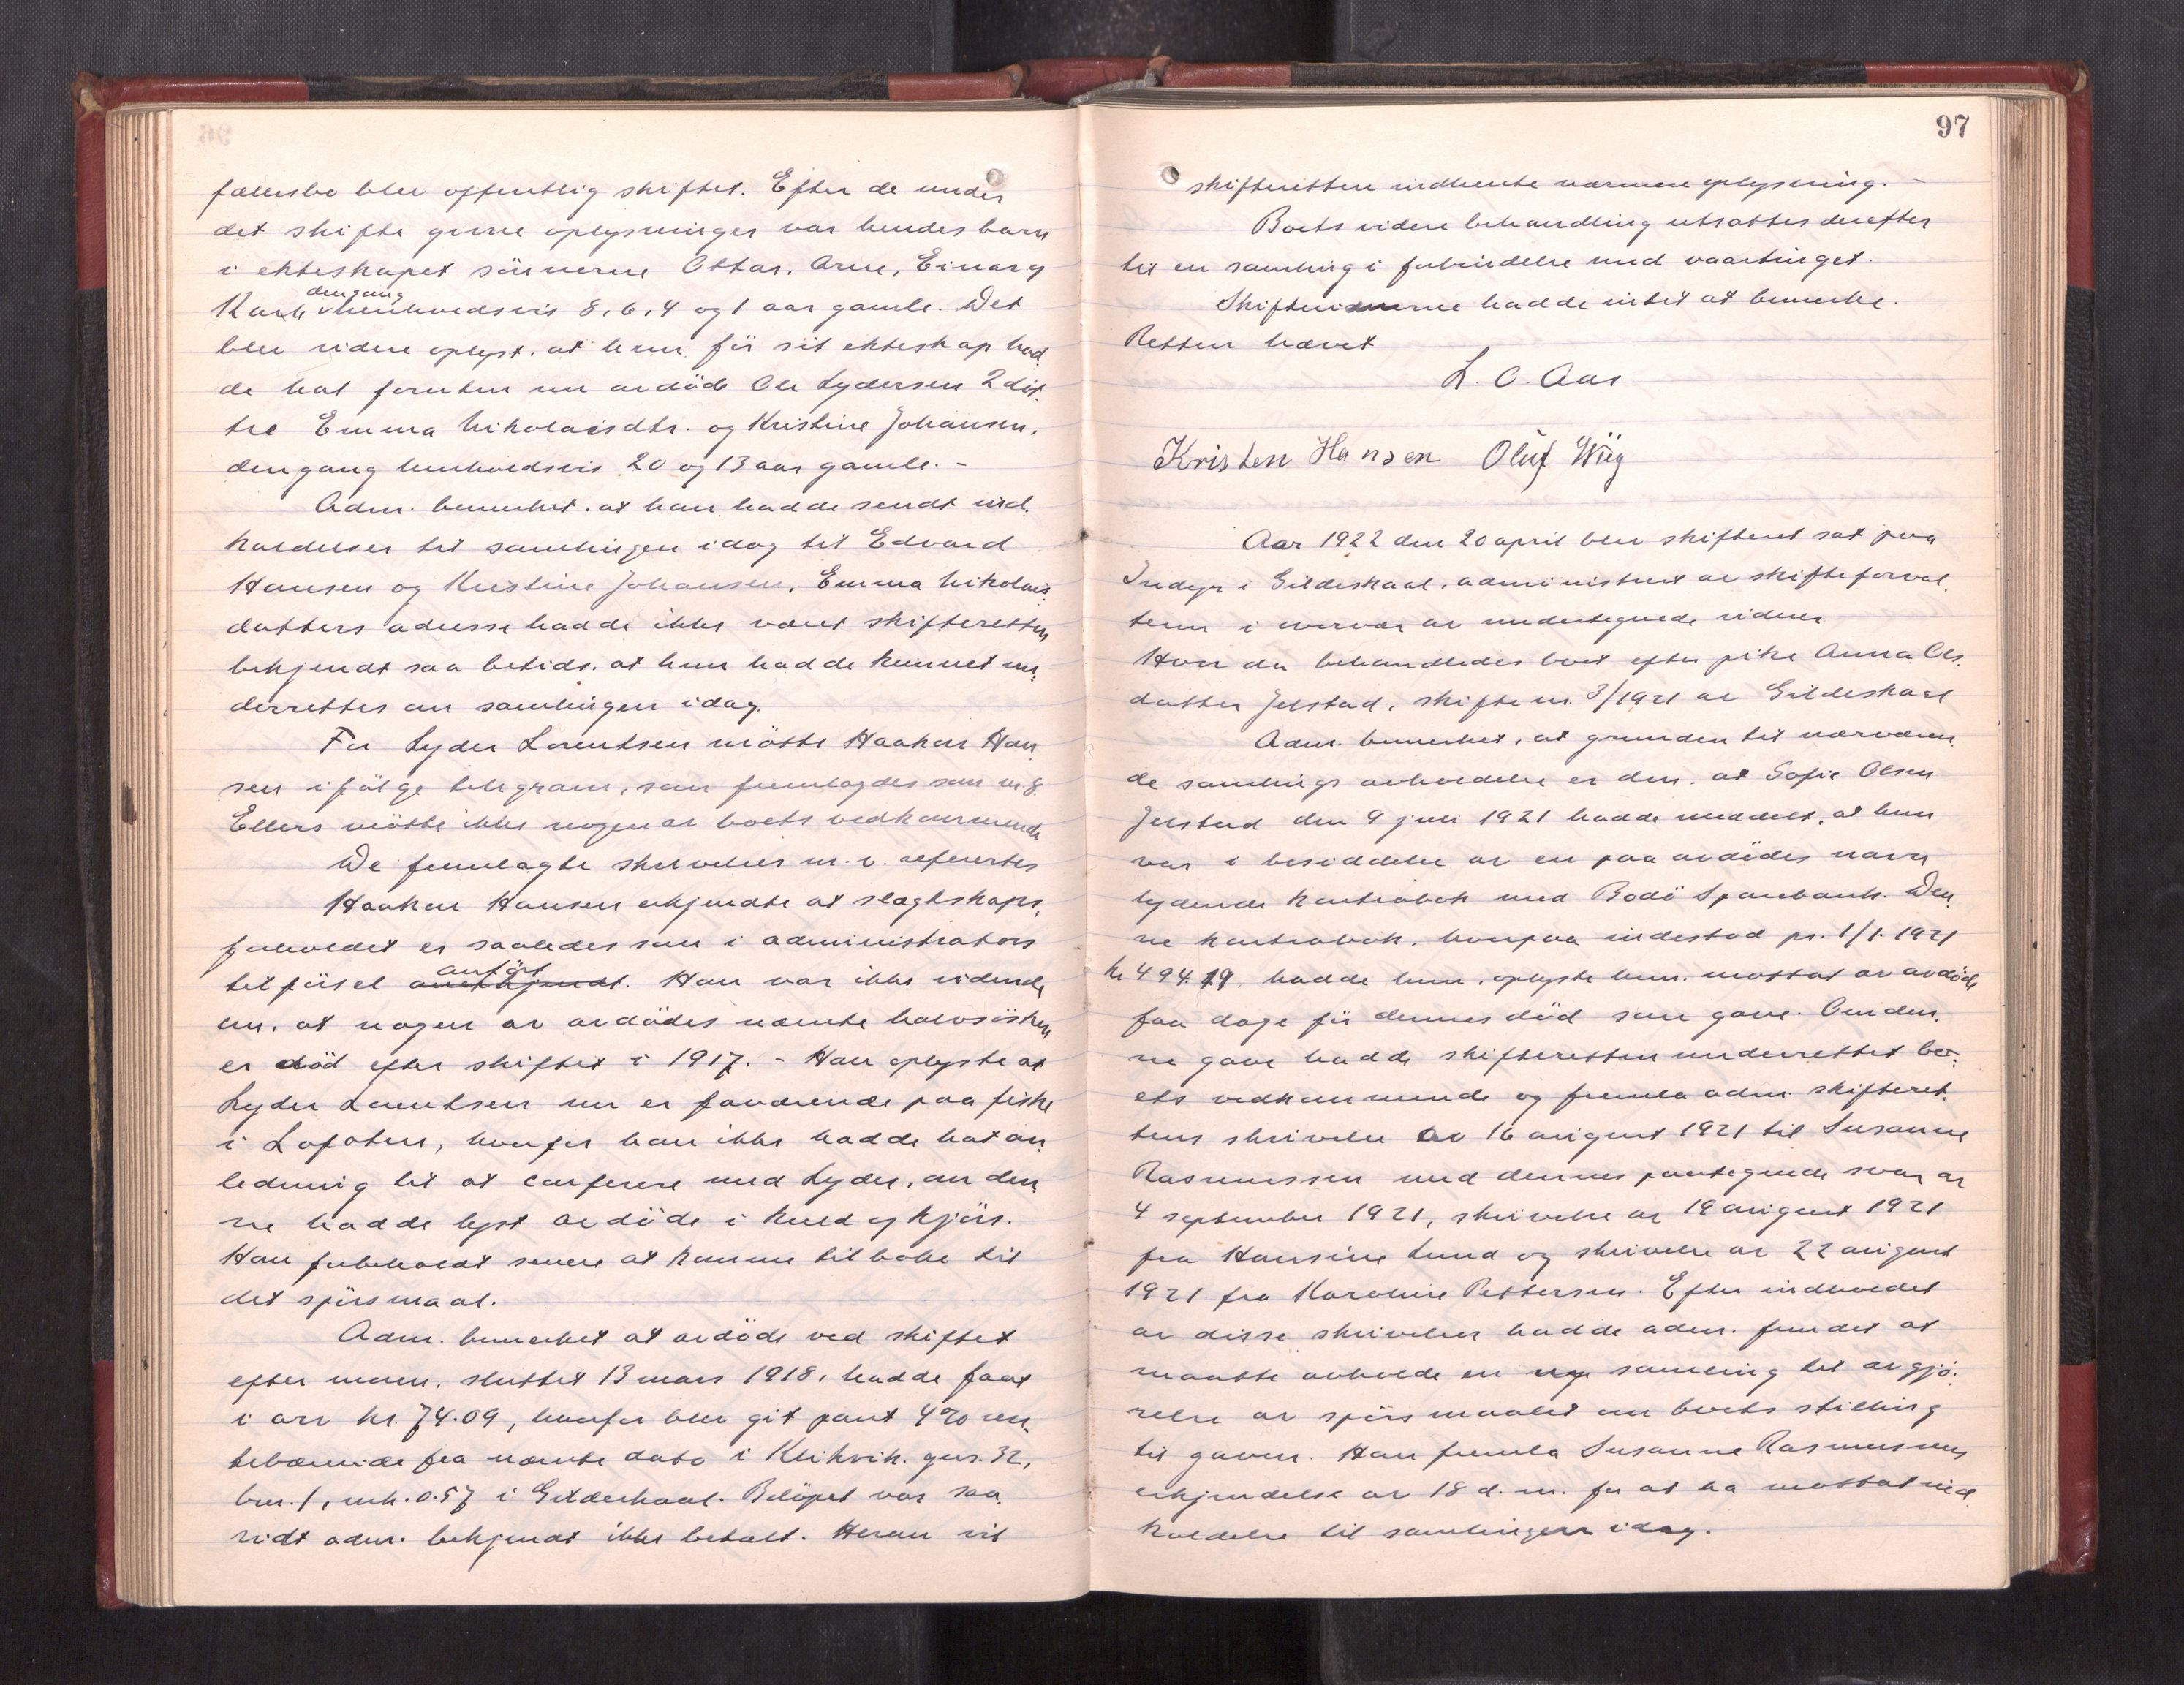 fællesbo blev offentlig skiftet. Efter de under
det skifte givne oplysninger var hendes barn
i ekteskapet sönnerne Ottar, Arne, Einar og
Karl dengang henholdsvis 8, 6, 4 og 1 aar gamle. Det
blev videre oplyst, at hun för sit ekteskap had-
de hat foruten nu avdöde Ole Lydersen 2 döt-
tre Emma Nikolaisdtr. og Kristine Johansen,
dengang henholdsvis 20 og 13 aar gamle. -
Adm. bemerket, at han hadde sendt ind-
kaldelser til samlingen idag til Edvard
Hansen og Kristine Johansen. Emma Nikolais-
datters adresse hadde ikke været skifteretten
bekjendt saa betids, at hun hadde kunnet un-
derrettes om samlingen idag.
For Lyder Lorentsen mötte Haakon Han-
sen ifölge telegram, som fremlagdes som nr. 8.
Ellers mötte ikke nogen av boets vedkommende
De fremlagte skrivelser m. v. refertes
Haakon Hansen erkjendte at slegtskaps-
forholdet er saaledes som i administrators
tilförsel anerkjendt anfört. Han var ikke vidende
om, at nogen av avdödes nævnte halvsösken
er död efter skiftet i 1917. - Han oplyste at
Lyder Lorentsen nu er faværende paa fiske
i Lofoten, hvorfor han ikke hadde hat an-
ledning til at conferere med Lyder, om den-
ne hadde lyst avdöde i kuld og kjön.
Han forbeholdt senere at komme tilbake til
det spörsmaal.
Adm. bemerket at avdöde ved skiftet
efter moren, sluttet 13 mars 1918, hadde faat
i arv kr. 74.09, hvorfor blev git pant 4% ren-
tebærende fra nævnte dato i Kleikvik, gnr. 32,
bnr. 1, mk. 0.57 i Gildeskaal. Belöpet var saa-
vidt adm. bekjendt ikke betalt. Herom vil
97
skifteretten indhente nærmere oplysning. -
Boets videre behandling utsattes derefter
til en samling i forbindelse med vaartinget.
Skiftevidnerne hadde intet at bemerke.
Retten hævet
L. O. Aas
Kristen Hansen Oluf Wiig
Aar 1922 den 20 april blev skifteret sat paa
Indyr i Gildeskaal, administrert av skifteforval-
teren i overvær av undertegnede vidner
Hvor da behandledes boet efter pike Anna Ols-
datter Jelstad, skifte nr. 3/1921 av Gildeskaal
Adm. bemerket, at grunden til nærværen-
de samlings avholdelse er den, at Sofie Olsen
Jelstad den 9 juli 1921 hadde meddelt, at hun
var i besiddelse av en paa avdödes navn
lydende kontrabok med Bodö Sparebank. Den-
ne kontrabok, hvorpaa indestod pr. 1/1-1921
kr 494.19, hadde hun, oplyste hun, mottat av avdöde
faa dage för dennes död som gave. Om den-
ne gave hadde skifteretten underrettet bo-
ets vedkommende og fremla adm. skifteret-
tens skrivelse av 16 august 1921 til Susanne
Rasmussen med dennes paategnede svar av
4 september 1921, skrivelse av 19 august 1921
fra Hansine Lund og skrivelse av 22 august
1921 fra Karoline Pettersen. Efter indholdet
av disse skrivelser hadde adm. fundet at
maatte avholde en ny samling til avgjö-
relse av spörsmaalet om boets stilling
til gaven. Han fremla Susanne Rasmussens
erkjendelse av 18 d. m. for at ha mottat ind-
kaldelse til samlingen idag.